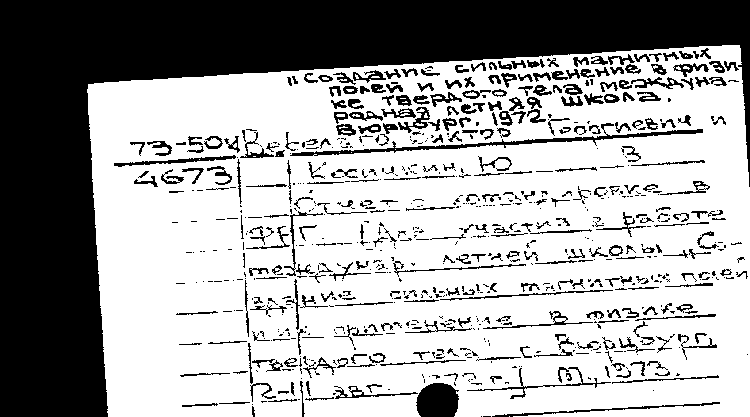 "Создание сильных магнитных
полей и их применение в физи-
ке твердого тела" междуна-
родная летняя школа.
Вюрцбург. 1972.
73-50К Веселаго, Виктор Георгиевич и
4673 Косичкин, Ю В
Отчет о командировке в
ФРГ. [Для участия в работе
междунар. летней школы „Со-
здание сильных магнитных полей
и их применение в физике
твердого тела" г. Вюрцбург,
авг. 1972 г.] М., 1973.